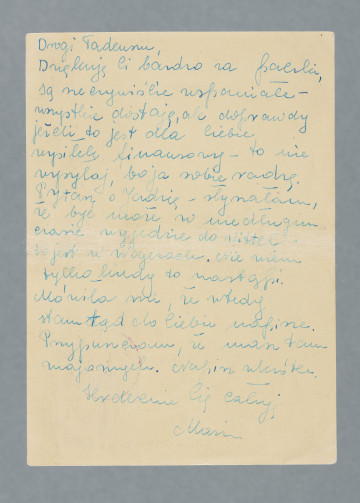 Drogi Tadeuszu,
Dziękuję Ci bardzo za paczki,
są rzeczywiście wspaniałe –
wszystkie dostaję, ale doprawdy
jeżeli to jest dla Ciebie
wysiłek finansowy – to nie
wysyłaj, bo ja sobie radzę.
Pytasz o – słyszałam,
że być może w niedługim
czasie wyjedzie do Vittel –
to jest w Wogezach. nie wiem
tylko kiedy to nastąpi.
Mówiła mi, że wtedy
stamtąd do Ciebie napisze.
Przypuszczam, że masz tam
znajomych. wkrótce.
Serdecznie Cię całuję